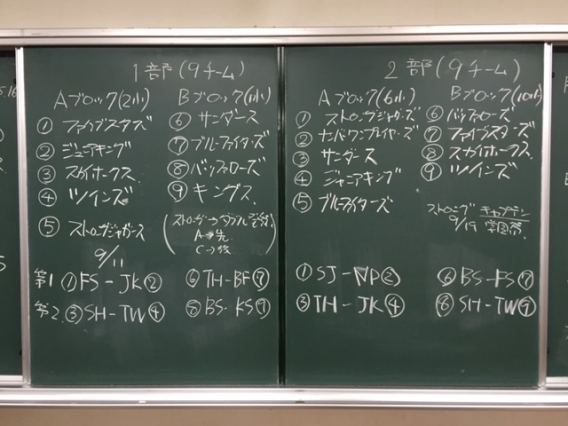 1部(9チーム)
Aブロック(2小)
① ファイブスターズ
② ジュニアキング
③ スカイホークス
④ ツインズ
⑤ ストロングジャガーズ
9/11
Bブロック(1小)
⑥ サンダース
⑦ ブルーファイターズ
⑧ バッファローズ
⑨ キングス
A→先
C→後
第1 ①FS-JK② ⑥TH-BF⑦
第2 ③SH-TW④ ⑧BS-KS⑨
2部(9チーム)
Aブロック(6小)
① ストロングジャガーズ
② ナンバーワンプレイヤーズ
③ サンダース
④ ジャニアキング
⑤ ブルーファイターズ
Bブロック(10小)
⑥ バッファローズ
⑦ ファイブスターズ
⑧ スカイホークス
⑨ ツインズ
ストロング キャプテン
9/19 学園祭
①SJ-NP② ⑥BS-FS⑦
③TH-JK④ ⑧SH-TW⑨